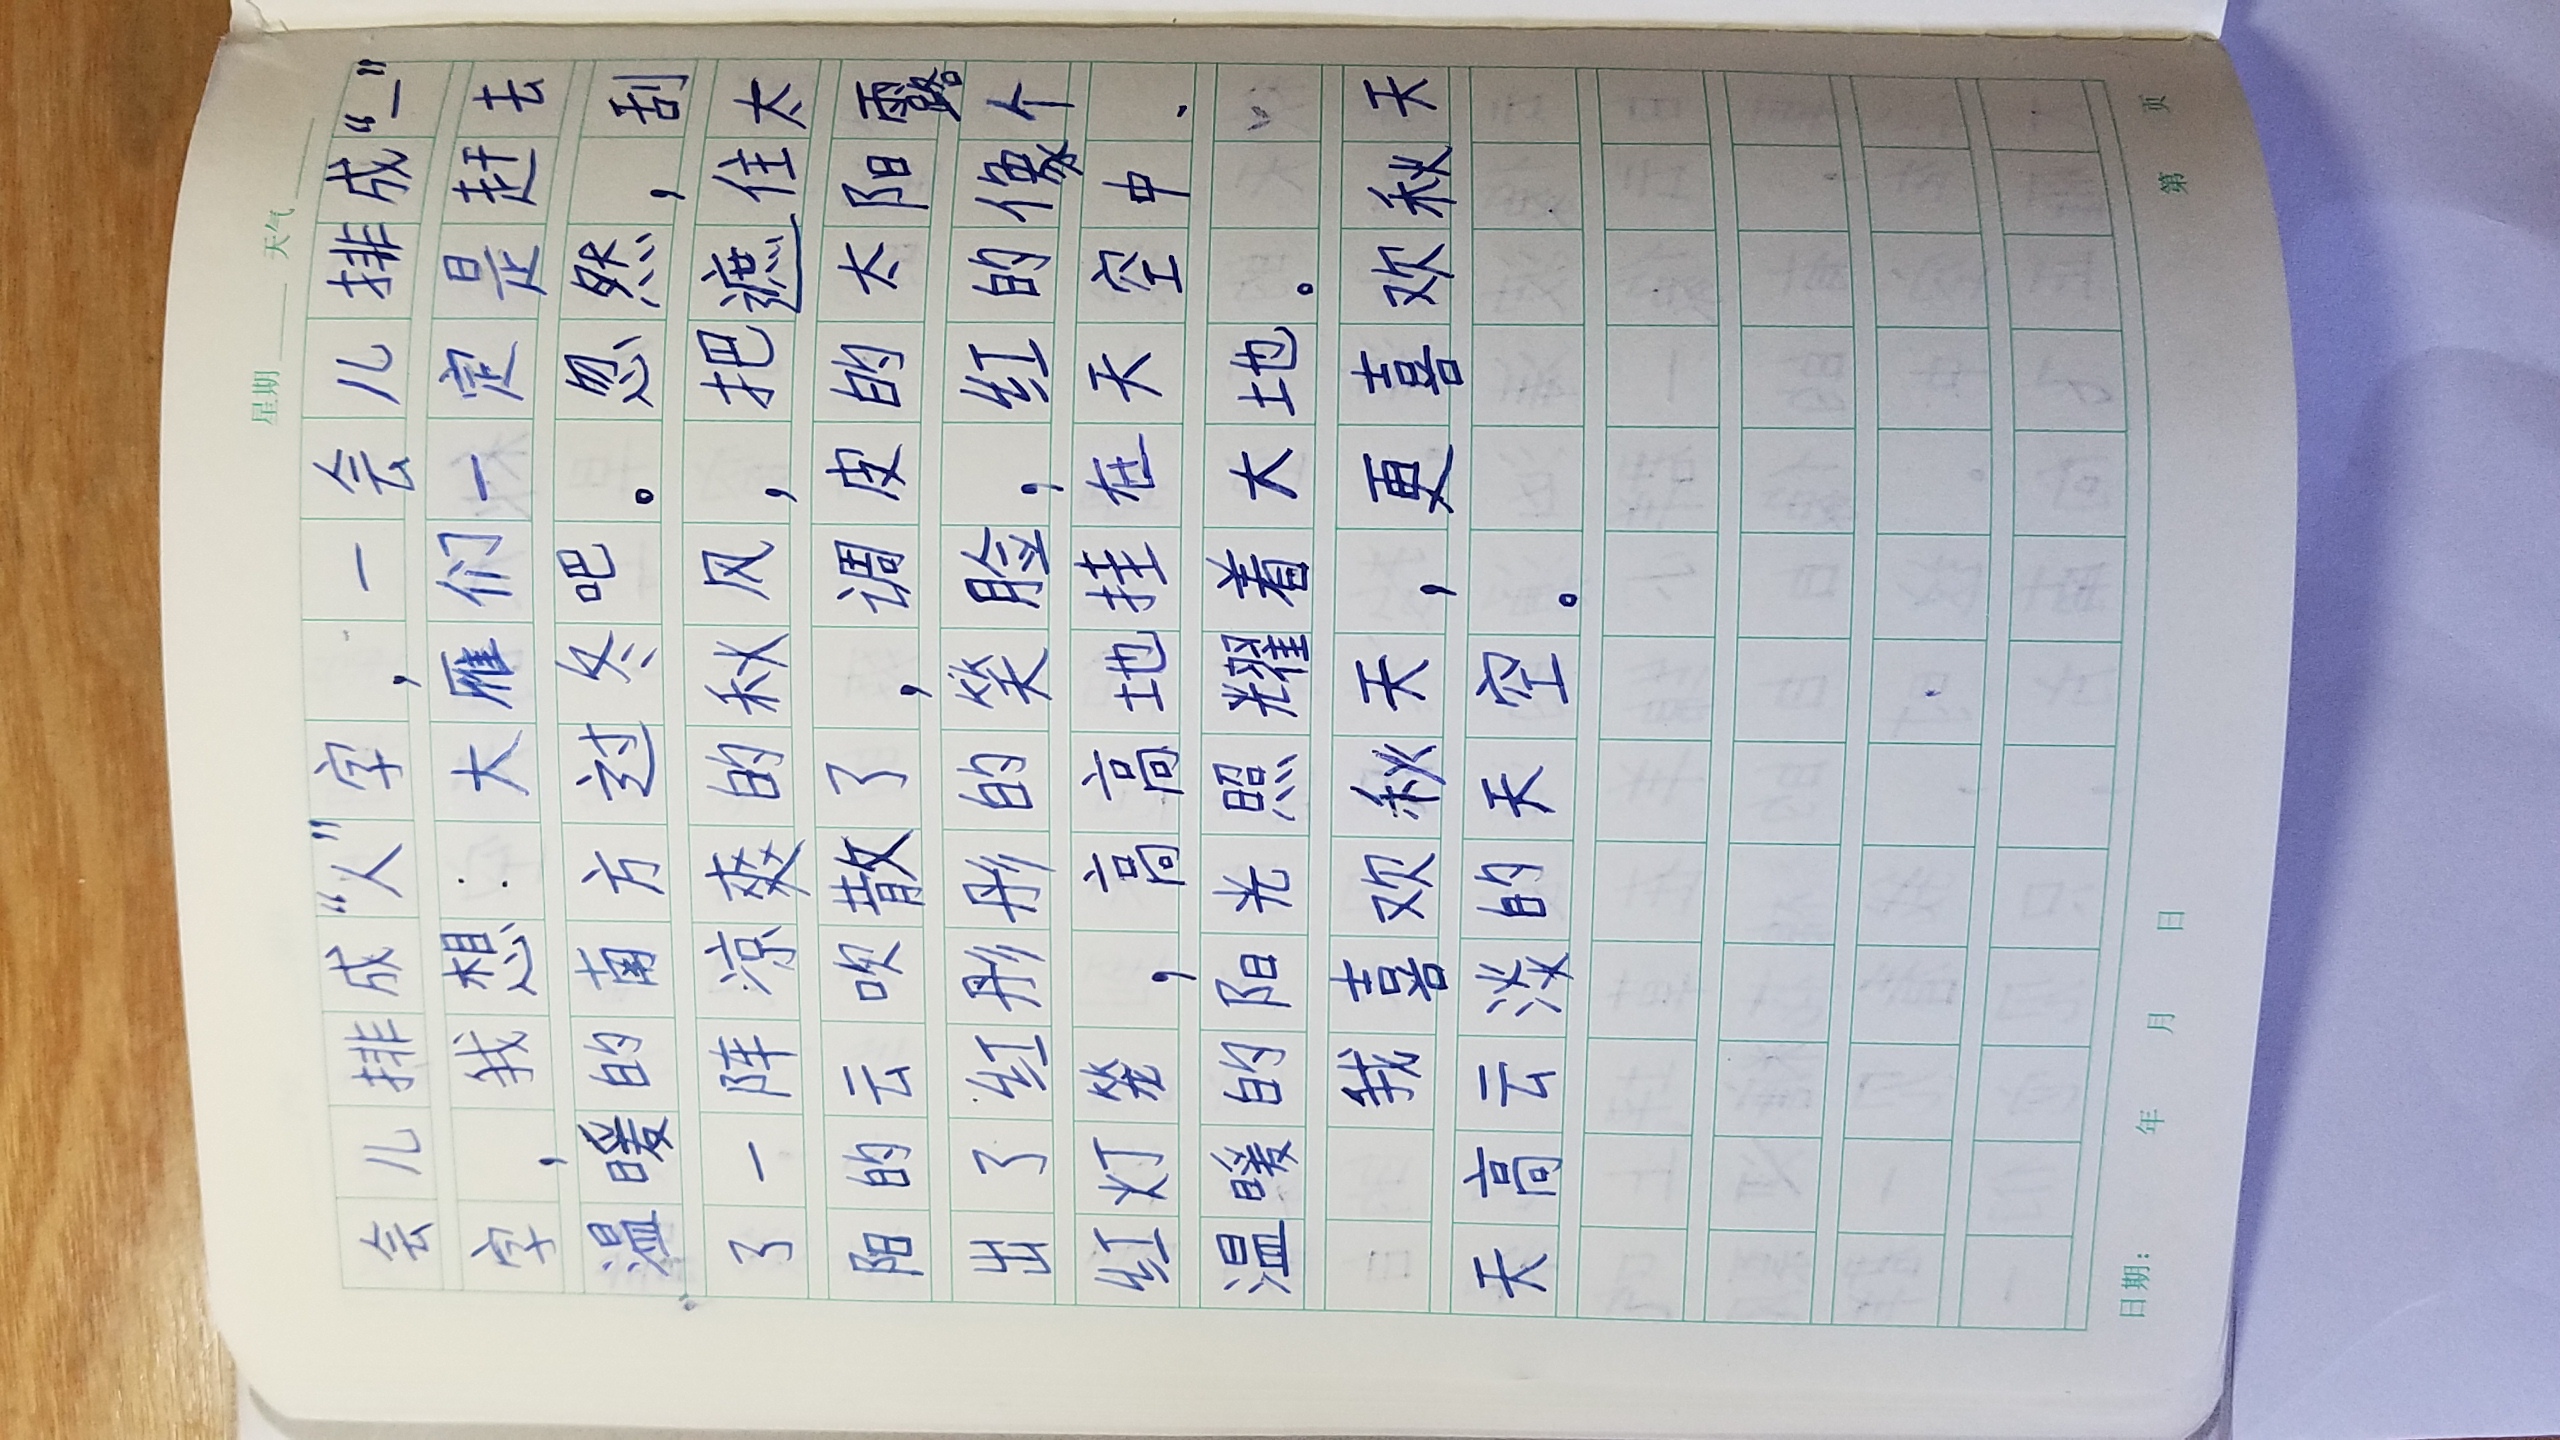 星期 天气
会儿排成“人”字，一会儿排成“一”
字，我想：大雁们一定是赶去
温暖的南方过冬吧。忽然，刮
了一阵凉爽的秋风，把遮住太
阳的云吹散了，调皮的太阳露
出了红彤彤的笑脸，红的像个
红灯笼，高高地挂在天空中、
温暖的阳光照耀着大地。
我喜欢秋天，更喜欢秋天
天高云淡的天空。
日期： 年 月 日 第 页